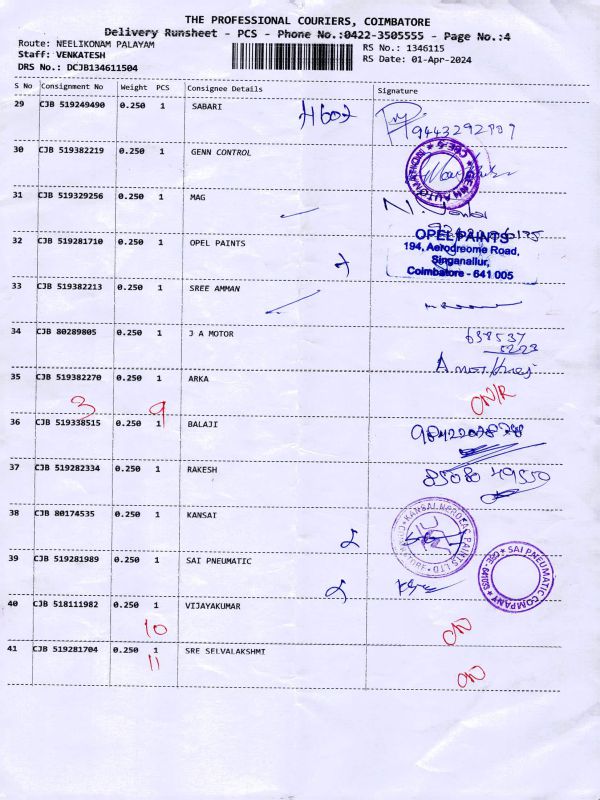 THE PROFESSIONAL COURIERS, COIMBATORE
Delivery Runsheet - PCS - Phone No.:0422-3505555 - Page No.:4
Route: NEELIKONAM PALAYAM
RS No.: 1346115
Staff: VENKATESH
RS Date: 01-Apr-2024
DRS No.: DCJB134611504
S No Consignment No Weight PCS Consignee Details Signature
29 CJB 519249490 0.250 1 SABARI H602
30 CJB 519382219 0.250 1 GENN CONTROL
31 CJB 519329256 0.250 1 MAG
32 CJB 519281710 0.250 1 OPEL PAINTS
OPEL PAINTS
194, Aerodreome Road,
Singanallur,
Coimbatore - 641 005
33 CJB 519382213 0.250 1 SREE AMMAN
34 CJB 80289805 0.250 1 J A MOTOR
35 CJB 519382270 0.250 1 ARKA
3 9
36 CJB 519338515 0.250 1 BALAJI
37 CJB 519282334 0.250 1 RAKESH 85080 49550
38 CJB 80174535 0.250 1 KANSAI
39 CJB 519281989 0.250 1 SAI PNEUMATIC
SAI PNEUMATIC COMPANY
40 CJB 518111982 0.250 1 VIJAYAKUMAR
10
41 CJB 519281704 0.250 1 SRE SELVALAKSHMI
11